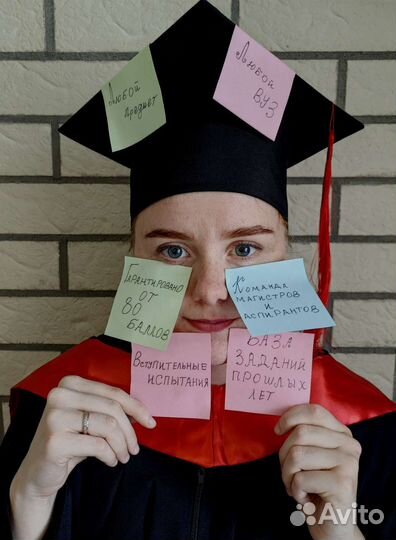 Любой
предмет
Любой
ВУЗ
Гарантировано
от
80
баллов
Команда
магистров
и
аспирантов
Вступительные
испытания
База
заданий
прошлых
лет
Avito